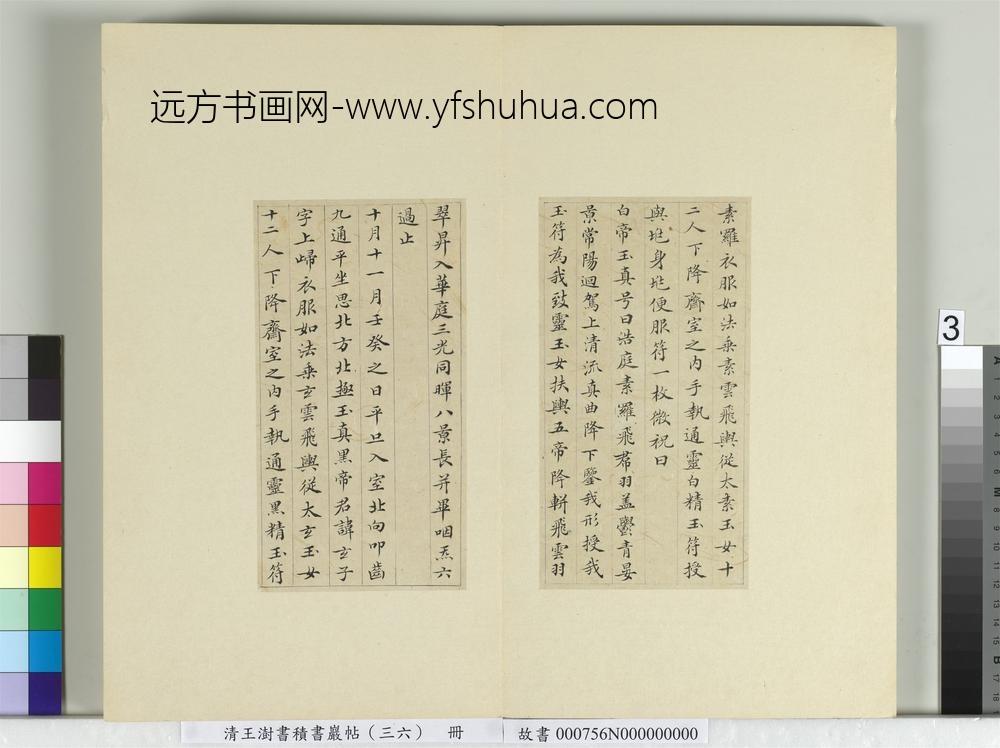 远方书画网-www.yfshuhua.com
素羅衣服如法乘素雲飛輿從太素玉女十
二人下降齋室之內手執通靈白精玉符授
與兆身兆便服符一枚微祝曰
白帝玉真号曰浩庭素羅飛帬羽蓋鬱青晏
景常陽迴駕上清流真曲降下鑒我形授我
玉符為我致靈玉女扶輿五帝降軿飛雲羽
翠昇入華庭三光同暉八景長并畢咽炁六
過止
十月十一月壬癸之日平旦入室北向叩齒
九通平坐思北方北極玉真黑帝君諱玄子
字上歸衣服如法乘玄雲飛輿從太玄玉女
十二人下降齋室之內手執通靈黑精玉符
3
清王澍書積書巖帖（三六） 冊
故書 000756N000000000